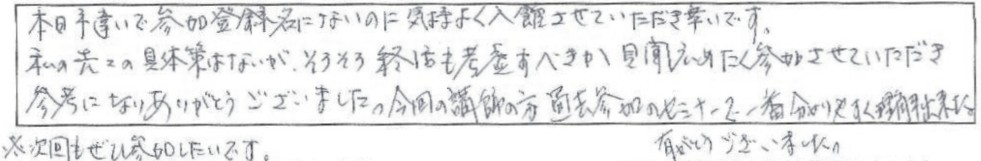 本日手違いで参加登録名にないのに気持よく入館させていただき幸いです。
私の先々の具体策はないが、そろそろ終活も考慮すべきか見聞広めたく参加させていただき
参考になりありがとうございました。今回の講師の方過去参加のセミナーで一番分かりやすく理解出来ました。
有がとうございました。
※次回もぜひ参加したいです。